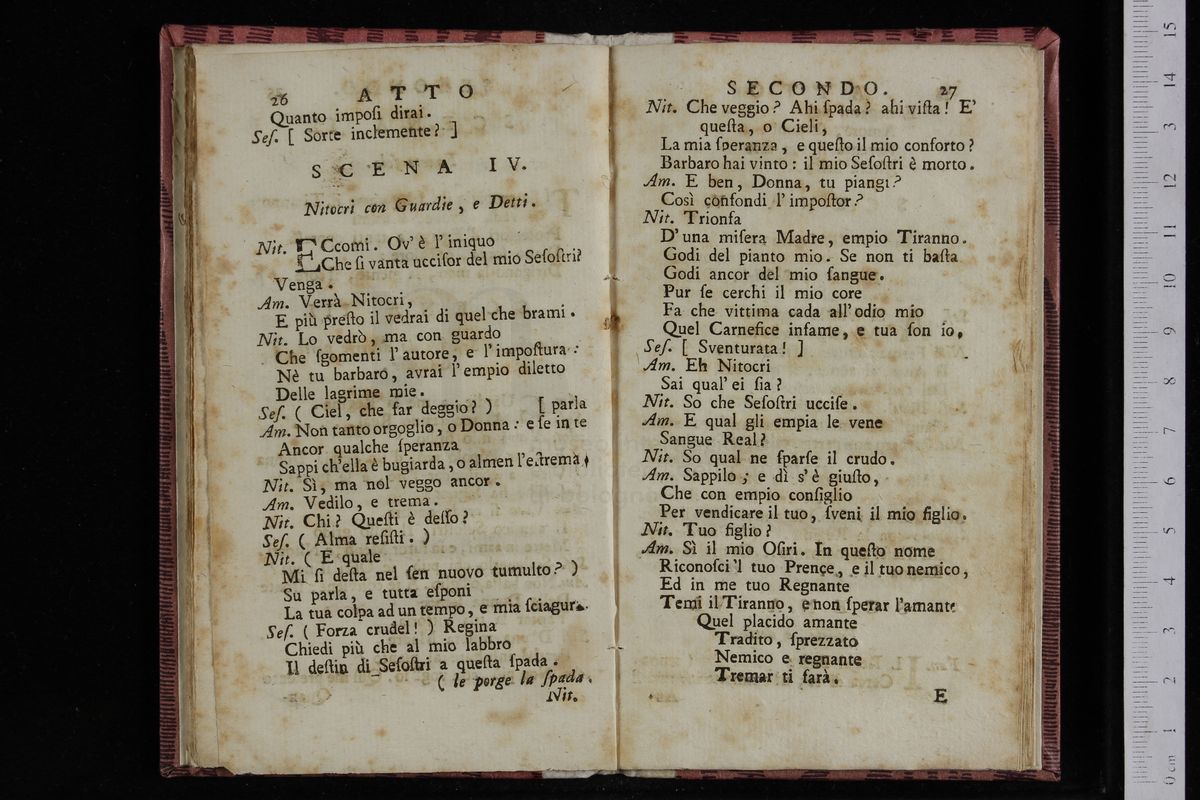 26 ATTO
Quanto imposi dirai.
Seſ. [ Sorte inclemente? ]
SCENA IV.
Nitocri con Guardie, e Detti.
Nit. ECcomi. Ov' è l' iniquo
Che ſi vanta ucciſor del mio Seſoſtri?
Venga.
Am. Verrà Nitocri,
E più preſto il vedrai di quel che brami.
Nit. Lo vedrò, ma con guardo
Che ſgomenti l' autore, e l' impoſtura:
Nè tu barbaro, avrai l' empio diletto
Delle lagrime mie.
Seſ. ( Ciel, che far deggio? ) [ parla
Am. Non tanto orgoglio, o Donna: e ſe in te
Ancor qualche ſperanza
Sappi ch'ella è bugiarda, o almen l'eſtrema,
Nit. Sì, ma nol veggo ancor.
Am. Vedilo, e trema.
Nit. Chi? Queſti è deſſo?
Seſ. ( Alma reſiſti. )
Nit. ( E quale
Mi ſi deſta nel ſen nuovo tumulto? )
Su parla, e tutta eſponi
La tua colpa ad un tempo, e mia ſciagura.
Seſ. ( Forza crudel! ) Regina
Chiedi più che al mio labbro
Il deſtin di Seſoſtri a queſta ſpada.
( le porge la ſpada.
Nit.
SECONDO. 27
Nit. Che veggio? Ahi ſpada? ahi viſta! E'
queſta, o Cieli,
La mia ſperanza, e queſto il mio conforto?
Barbaro hai vinto: il mio Seſoſtri è morto.
Am. E ben, Donna, tu piangi?
Così confondi l' impoſtor?
Nit. Trionfa
D' una miſera Madre, empio Tiranno.
Godi del pianto mio. Se non ti baſta
Godi ancor del mio ſangue.
Pur ſe cerchi il mio core
Fa che vittima cada all' odio mio
Quel Carnefice infame, e tua ſon io.
Seſ. [ Sventurata! ]
Am. Eh Nitocri
Sai qual' ei ſia?
Nit. So che Seſoſtri ucciſe.
Am. E qual gli empia le vene
Sangue Real?
Nit. So qual ne ſparſe il crudo.
Am. Sappilo; e dì s' è giuſto,
Che con empio conſiglio
Per vendicare il tuo, ſveni il mio figlio.
Nit. Tuo figlio?
Am. Sì il mio Oſiri. In queſto nome
Riconoſci 'l tuo Prence, e il tuo nemico,
Ed in me tuo Regnante
Temi il Tiranno, e non ſperar l'amante
Quel placido amante
Tradito, ſprezzato
Nemico e regnante
Tremar ti farà.
E
0 cm 1 2 3 4 5 6 7 8 9 10 11 12 13 14 15